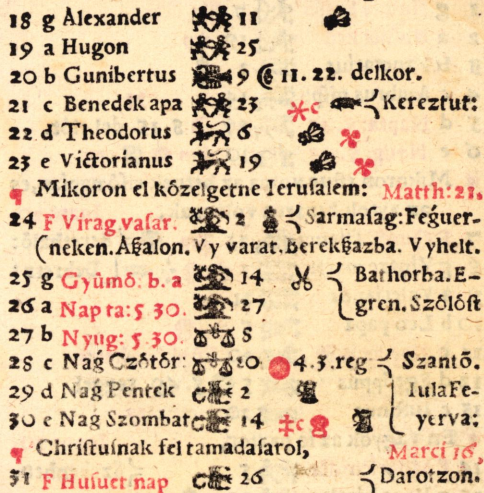 18 g Alexander 11
19 a Hugon 25
20 b Gunibertus 9 ☾ 11. 22. delkor.
21 c Benedek apa 23 c Kereztut:
22 d Theodorus 6
23 e Victorianus 19
¶ Mikoron el kôzelgetne Ierusalem: Matth: 21.
24 F Virag vasar. 2 Sarmasag: Feǵuer-
(neken. Aßalon. Vy varat. Berekßazba. Vyhelt.
25 g Gyûmô. b. a 14 Bathorba. E-
26 a Nap ta: 5 30. 27 gren. Szôlôst
27 b Nyug: 5 30. 8
28 c Naǵ Czôtôr: 20 4. 3. reg Szantō.
29 d Naǵ Pentek 2 Iula Fe-
30 e Naǵ Szombat 14 ‡c yerva:
¶ Christusnak fel tamadasarol, Marci 16,
31 F Husuet nap 26 Darotzon.